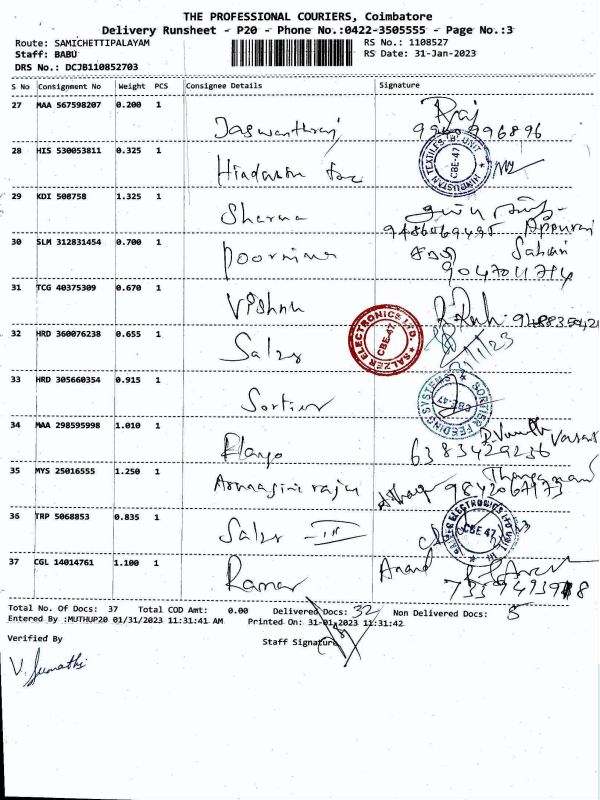 THE PROFESSIONAL COURIERS, Coimbatore
Delivery Runsheet - P20 - Phone No.:0422-3505555 - Page No.:3
Route: SAMICHETTIPALAYAM
RS No.: 1108527
Staff: BABU
RS Date: 31-Jan-2023
DRS No.: DCJB110852703
S No Consignment No Weight PCS Consignee Details Signature
27 MAA 567598207 0.200 1 Jaswanthraj Raj
28 HIS 530053811 0.325 1 Hindustan
HINDUSTAN TEXTILES CBE-47
29 KDI 508758 1.325 1 Sharma
30 SLM 312831454 0.700 1 Poornima
31 TCG 40375309 0.670 1 Vishnu
32 HRD 360076238 0.655 1 Salzer
SALZER ELECTRONICS LTD. CBE-47
33 HRD 305660354 0.915 1 Sortier
SORTIER FEEDING SYSTEMS CBE 47
34 MAA 298595998 1.010 1 Elango
6383429236
35 MYS 25016555 1.250 1
36 TRP 5068853 0.835 1 Salzer - III
SALZER ELECTRONICS LTD CBE 47
37 CGL 14014761 1.100 1 Ramar Anand
Total No. Of Docs: 37 Total COD Amt: 0.00 Delivered Docs: 32 Non Delivered Docs: 5
Entered By :MUTHUP20 01/31/2023 11:31:41 AM Printed On: 31-01-2023 11:31:42
Verified By Staff Signature
V. Sumathi